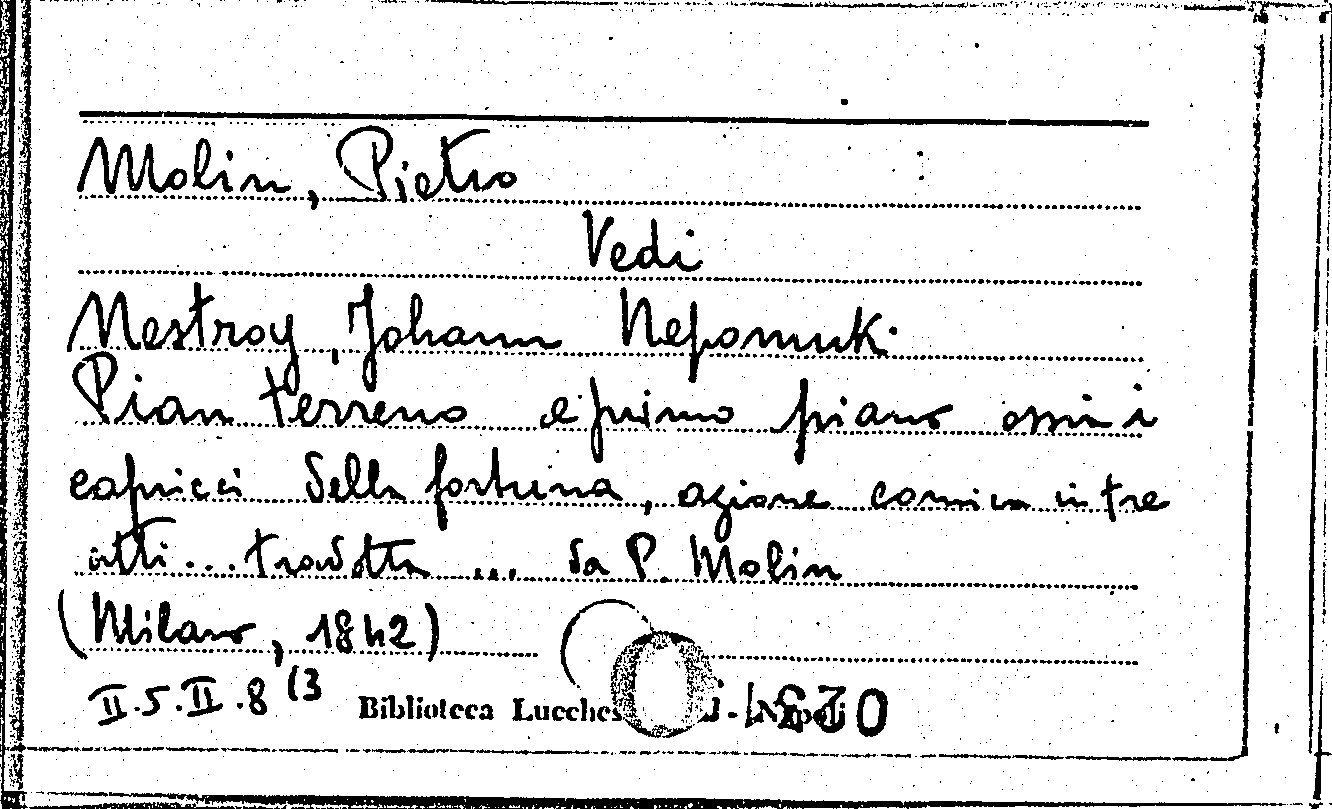 Molin, Pietro
Vedi
Nestroy, Johann Nepomuk.
Pian terreno e primo piano ossia i
capricci della fortuna, azione comica in tre
atti... tradotta ... da P. Molin
(Milano, 1842)
II.5.II.8 (3
Biblioteca Lucches - Napoli